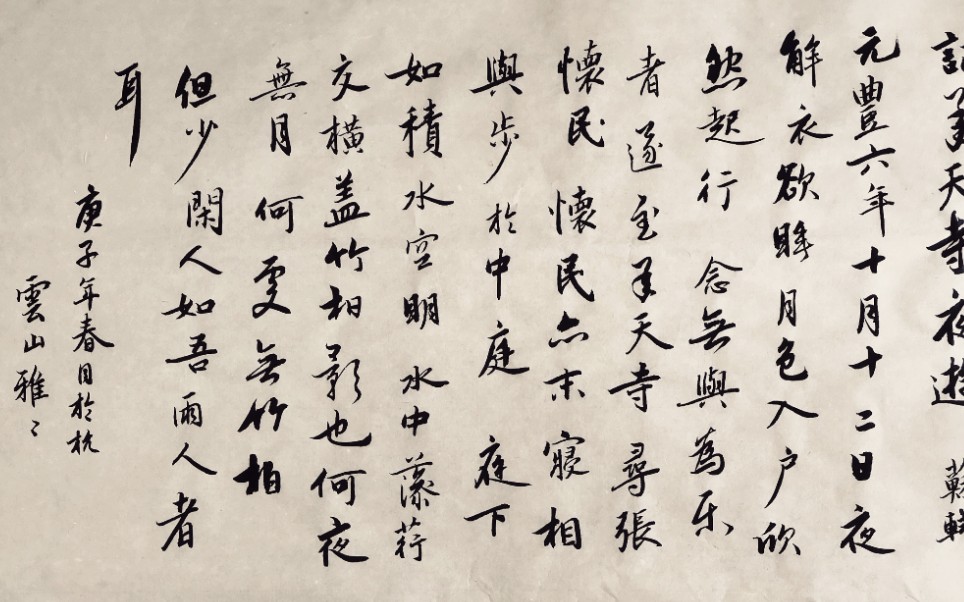 記承天寺夜遊 蘇軾
元豐六年十月十二日夜
解衣欲睡月色入户欣
然起行念無與為乐
者遂至承天寺尋張
懷民懷民亦未寢相
與步於中庭庭下
如積水空明水中藻荇
交橫盖竹柏影也何夜
無月何處無竹柏
但少閑人如吾兩人者
耳
庚子年春日於杭
雲山雅〻